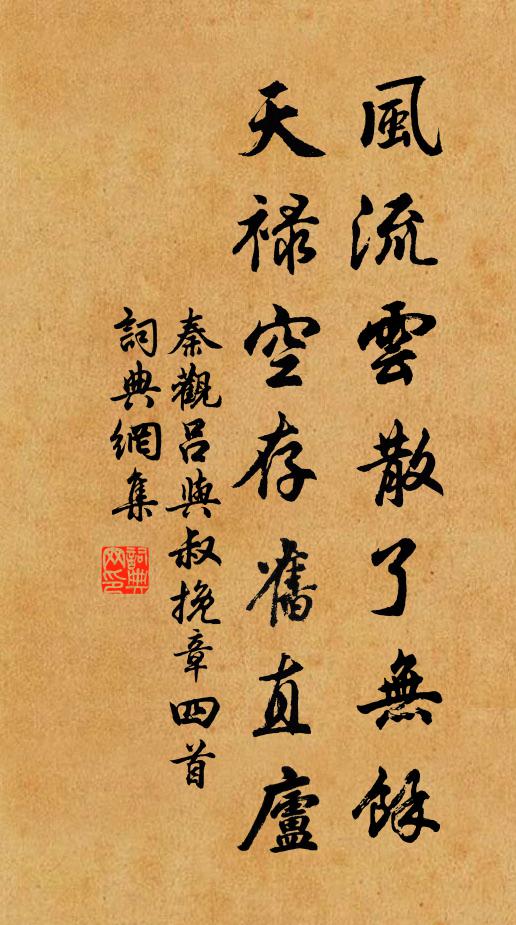 風流雲散了無餘
天禄空存舊直廬
秦觀呂與叔挽章四首
詞典網集
詞典網印